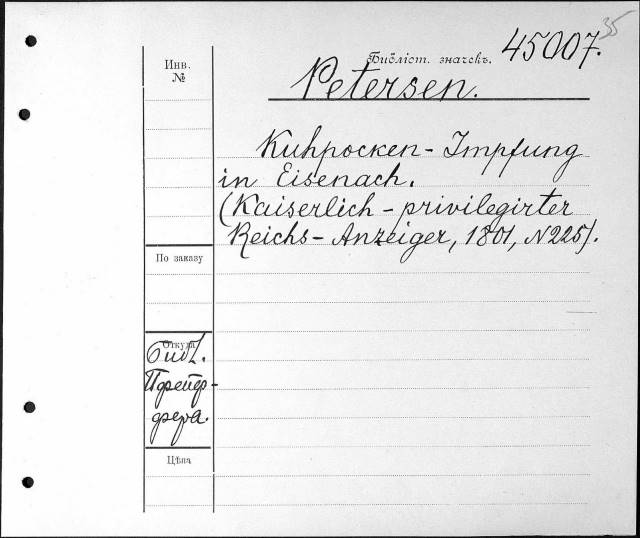 35
Библіот. значекъ. 45007.
Инв.
№
Petersen.
Kuhpocken-Impfung
in Eisenach.
(Kaiserlich-privilegirter
Reichs-Anzeiger, 1801, N225).
По заказу
Откуда
Библ.
Пфейф-
фера.
Цѣна